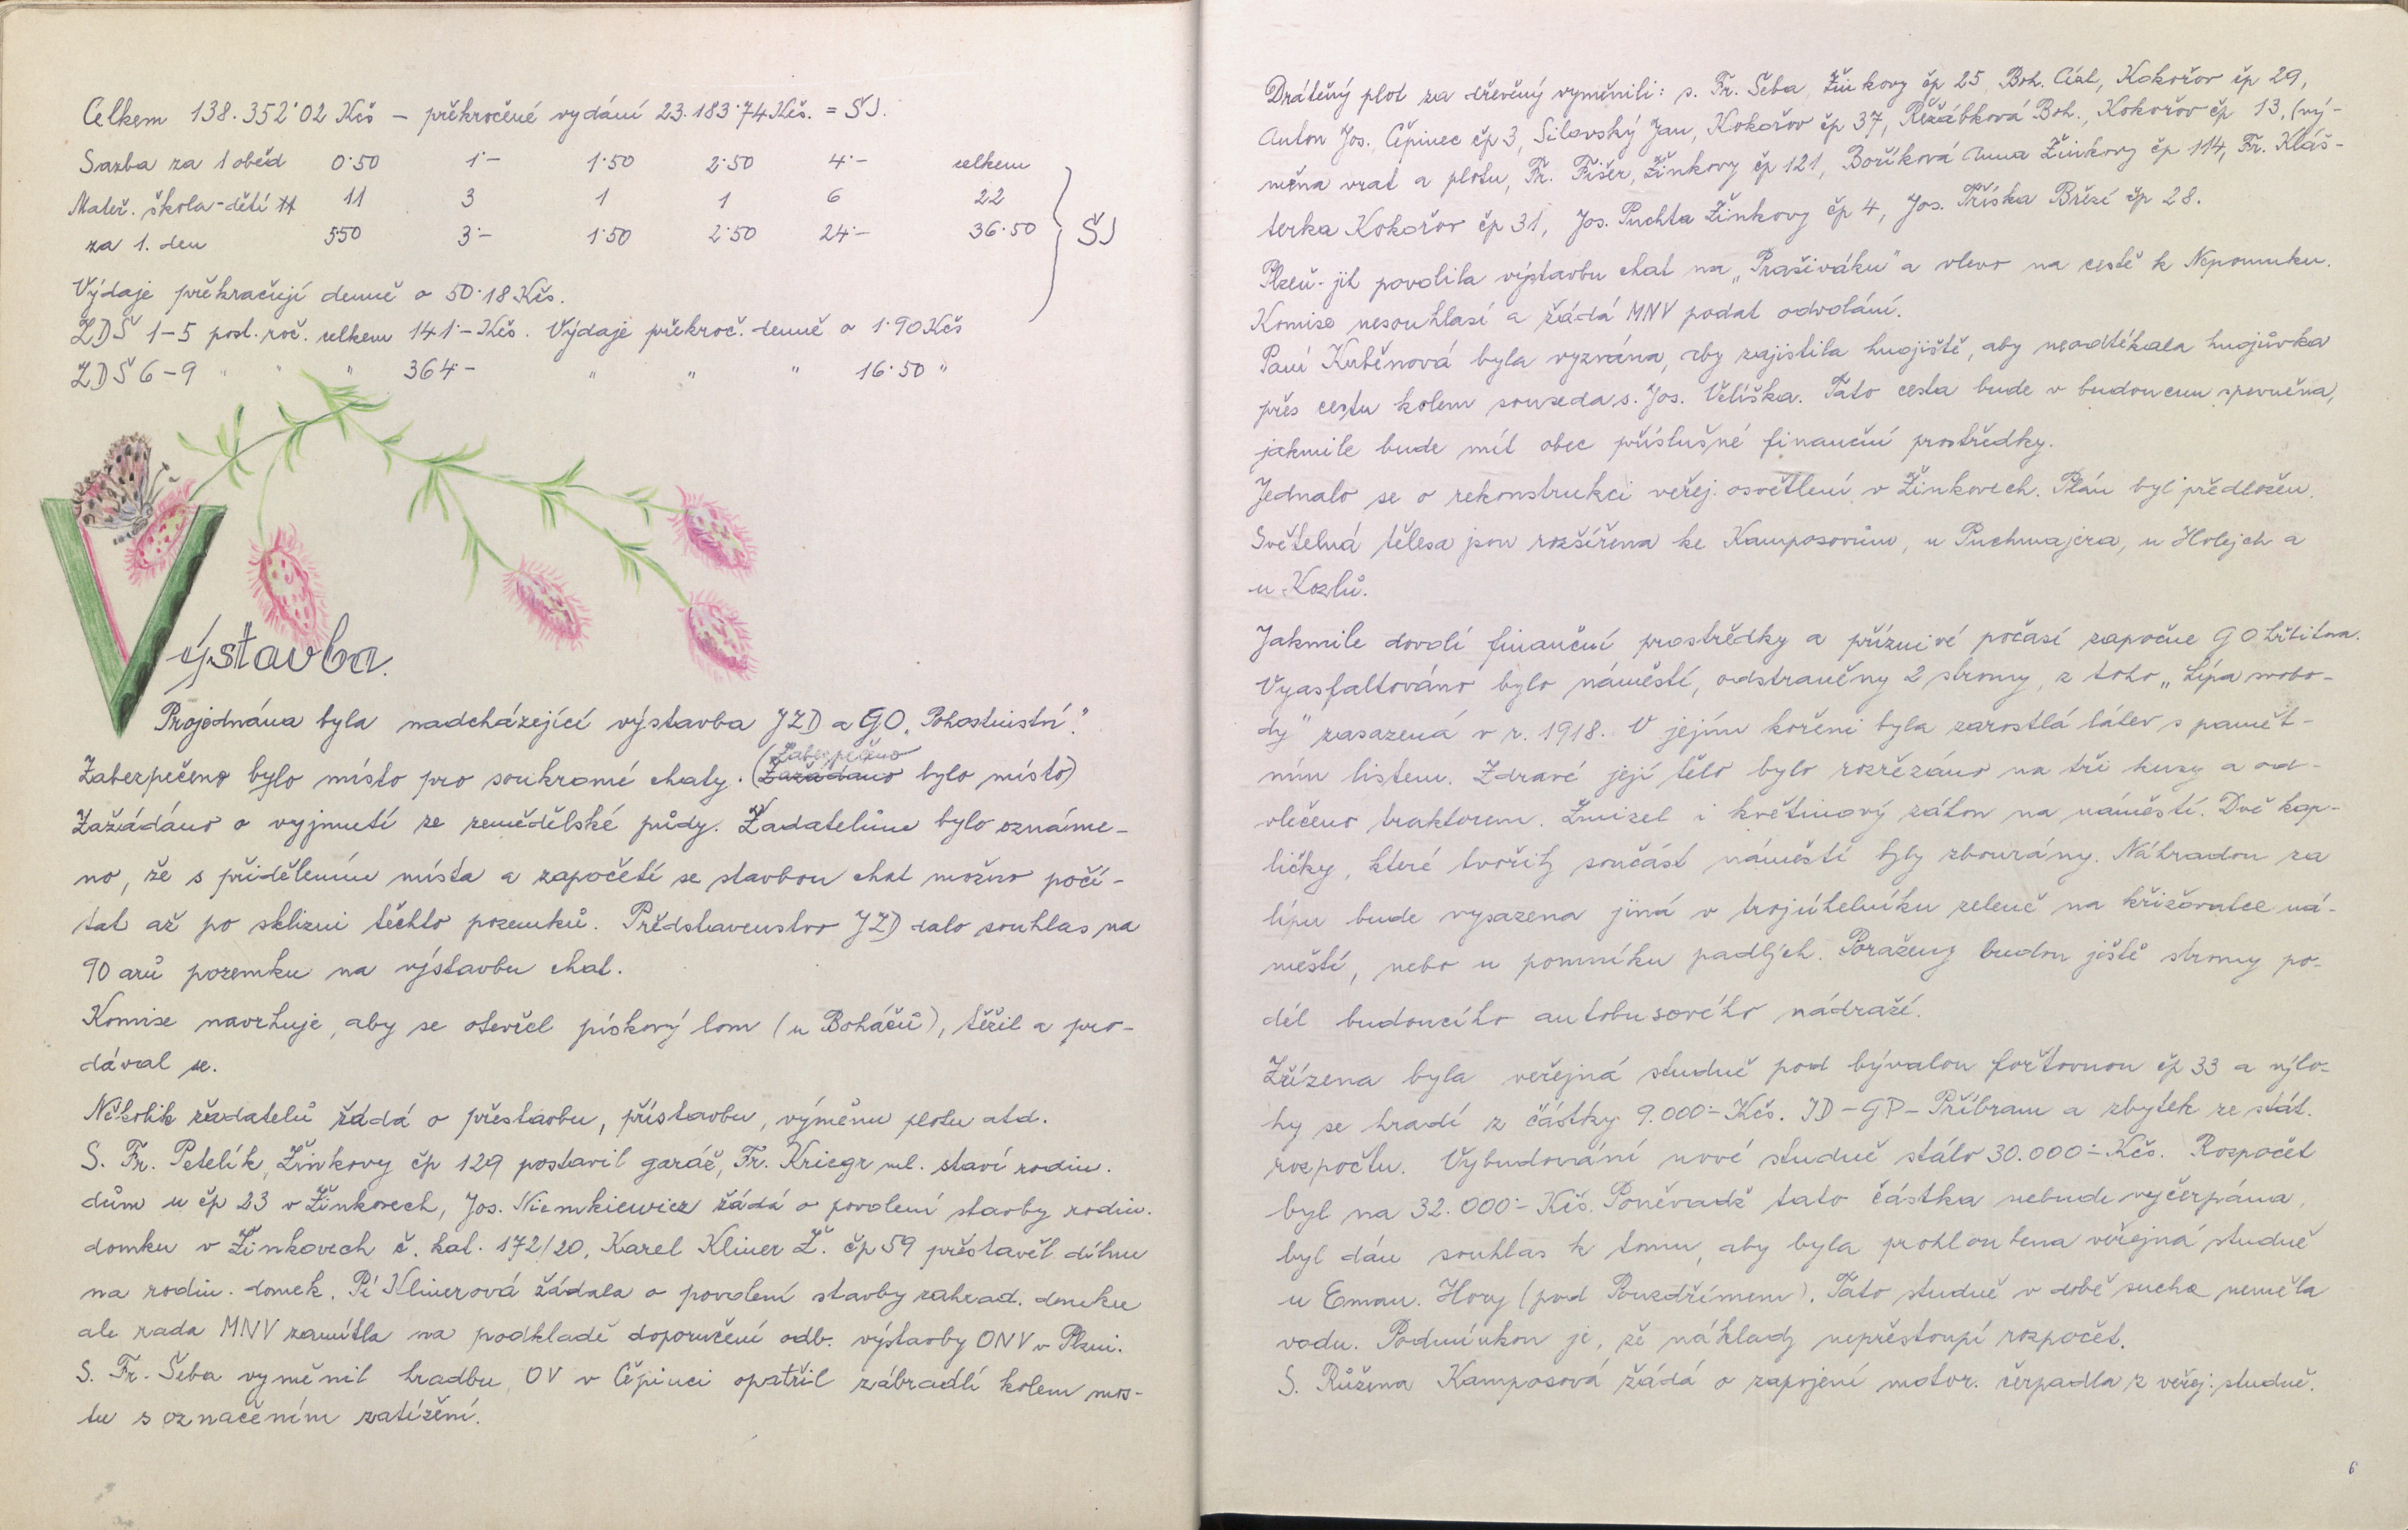 Celkem 138.352˙02 Kčs – překročené vydání 23.183˙74 Kčs. = ŠJ.
Sazba za 1 oběd 0˙50 1˙– 1˙50 2˙50 4˙– celkem
Mateř. škola - dětí 11 3 1 1 6 22
za 1. den 5˙50 3˙– 1˙50 2˙50 24˙– 36˙50 ŠJ
Výdaje překračují denně o 50˙18 Kčs.
ZDŠ 1–5 post. roč. celkem 141˙– Kčs. Výdaje překroč. denně o 1˙90 Kčs
ZDŠ 6–9 " " " 364˙– " " " 16˙50 "
Výstavba.
Projednána byla nadcházející výstavba JZD a GO „Pohostinství".
Zabezpečeno bylo místo pro soukromé chaty. (Zažádáno Zabezpečeno bylo místo)
Zažádáno o vyjmutí ze zemědělské půdy. Žadatelům bylo oznáme-
no, že s přidělením místa a započetí se stavbou chat možno počí-
tat až po sklizni těchto pozemků. Představenstvo JZD dalo souhlas na
90 arů pozemku na výstavbu chat.
Komise navrhuje, aby se otevřel pískový lom (u Boháčů), těžil a pro-
dával se.
Několik žadatelů žádá o přestavbu, přístavbu, výměnu plotu atd.
S. Fr. Petelík, Žinkovy čp 129 postavil garáž, Fr. Kriegr ml. staví rodin.
dům u čp 23 v Žinkovech, Jos. Niemkiewicz žádá o povolení stavby rodin.
domku v Žinkovech č. kat. 172/20, Karel Kliner Ž. čp 59 přestavěl dílnu
na rodin. domek. Pí Klinerová žádala o povolení stavby zahrad. domku
ale rada MNV zamítla na podkladě doporučení odb. výstavby ONV v Plzni.
S. Fr. Šeba vyměnil hradbu, OV v Čepinci opatřil zábradlí kolem mos-
tu s označením zatížení.
Drátěný plot za dřevěný vyměnili: s. Fr. Šeba, Žinkovy čp 25, Boh. Cízl, Kokořov čp 29,
Anton Jos., Čepinec čp 3, Silovský Jan, Kokořov čp 37, Řežábková Boh., Kokořov čp 13, (vý-
měna vrat a plotu, Fr. Fišer, Žinkovy čp 121, Boříková Anna Žinkovy čp 114, Fr. Kláš-
terka Kokořov čp 31, Jos. Puchta Žinkovy čp 4, Jos. Tříska Březí čp 28.
Plzeň-jih povolila výstavbu chat na „Prašiváku" a vlevo na cestě k Nepomuku.
Komise nesouhlasí a žádá MNV podat odvolání.
Paní Kuběnová byla vyzvána, aby zajistila hnojiště, aby neodtékala hnojůvka
přes cestu kolem souseda s. Jos. Velíška. Tato cesta bude v budoucnu zpevněna,
jakmile bude mít obec příslušné finanční prostředky.
Jednalo se o rekonstrukci veřej. osvětlení v Žinkovech. Plán byl předložen.
Světelná tělesa jsou rozšířena ke Kamposovům, u Puchmajera, u Holejch a
u Kozlů.
Jakmile dovolí finanční prostředky a příznivé počasí započne GO hřbitova.
Vyasfaltováno bylo náměstí, odstraněny 2 stromy, z toho „Lípa svobo-
dy" zasazená v r. 1918. V jejím kořeni byla zarostlá láhev s pamět-
ním listem. Zdravé její tělo bylo rozřezáno na tři kusy a od-
vlečeno traktorem. Zmizel i květinový záhon na náměstí. Dvě kap-
ličky, které tvořily součást náměstí byly zbourány. Náhradou za
lípu bude vysazena jiná v trojúhelníku zeleně na křižovatce ná-
městí, nebo u pomníku padlých. Poraženy budou ještě stromy po-
dél budoucího autobusového nádraží.
Zřízena byla veřejná studně pod bývalou foršтovnou čp 33 a výlo-
hy se hradí z částky 9.000˙– Kčs. JD – GP – Příbram a zbytek ze stát.
rozpočtu. Vybudování nové studně stálo 30.000˙– Kčs. Rozpočet
byl na 32.000˙– Kčs. Poněvadž tato částka nebude vyčerpána,
byl dán souhlas k tomu, aby byla prohloubena veřejná studně
u Eman. Hory (pod Pouzdřímem). Tato studně v době sucha neměla
vodu. Podmínkou je, že náklady nepřestoupí rozpočet.
S. Růžena Kamposová žádá o zapojení motor. čerpadla z veřej. studně.
6